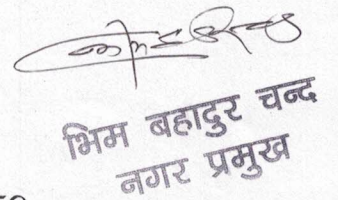 भिम बहादुर चन्द
नगर प्रमुख